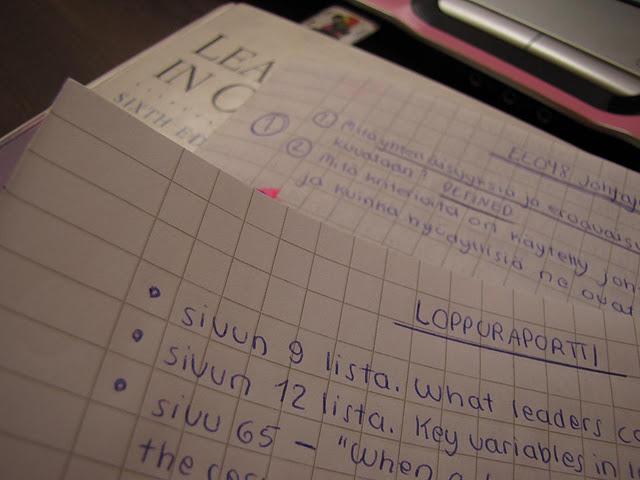 LEA
IN O
SIXTH ED
ELO48 Johtaj
① ① Mitä yhtenäisyyksiä ja eroavaisu
kuvataan? DEFINED
② Mitä kriteereitä on käytetty joh
ja kuinka hyödyllisiä ne ovat
LOPPURAPORTTI
• sivun 9 lista. What leaders
• sivun 12 lista. Key variables in
• sivu 65 – "When
the